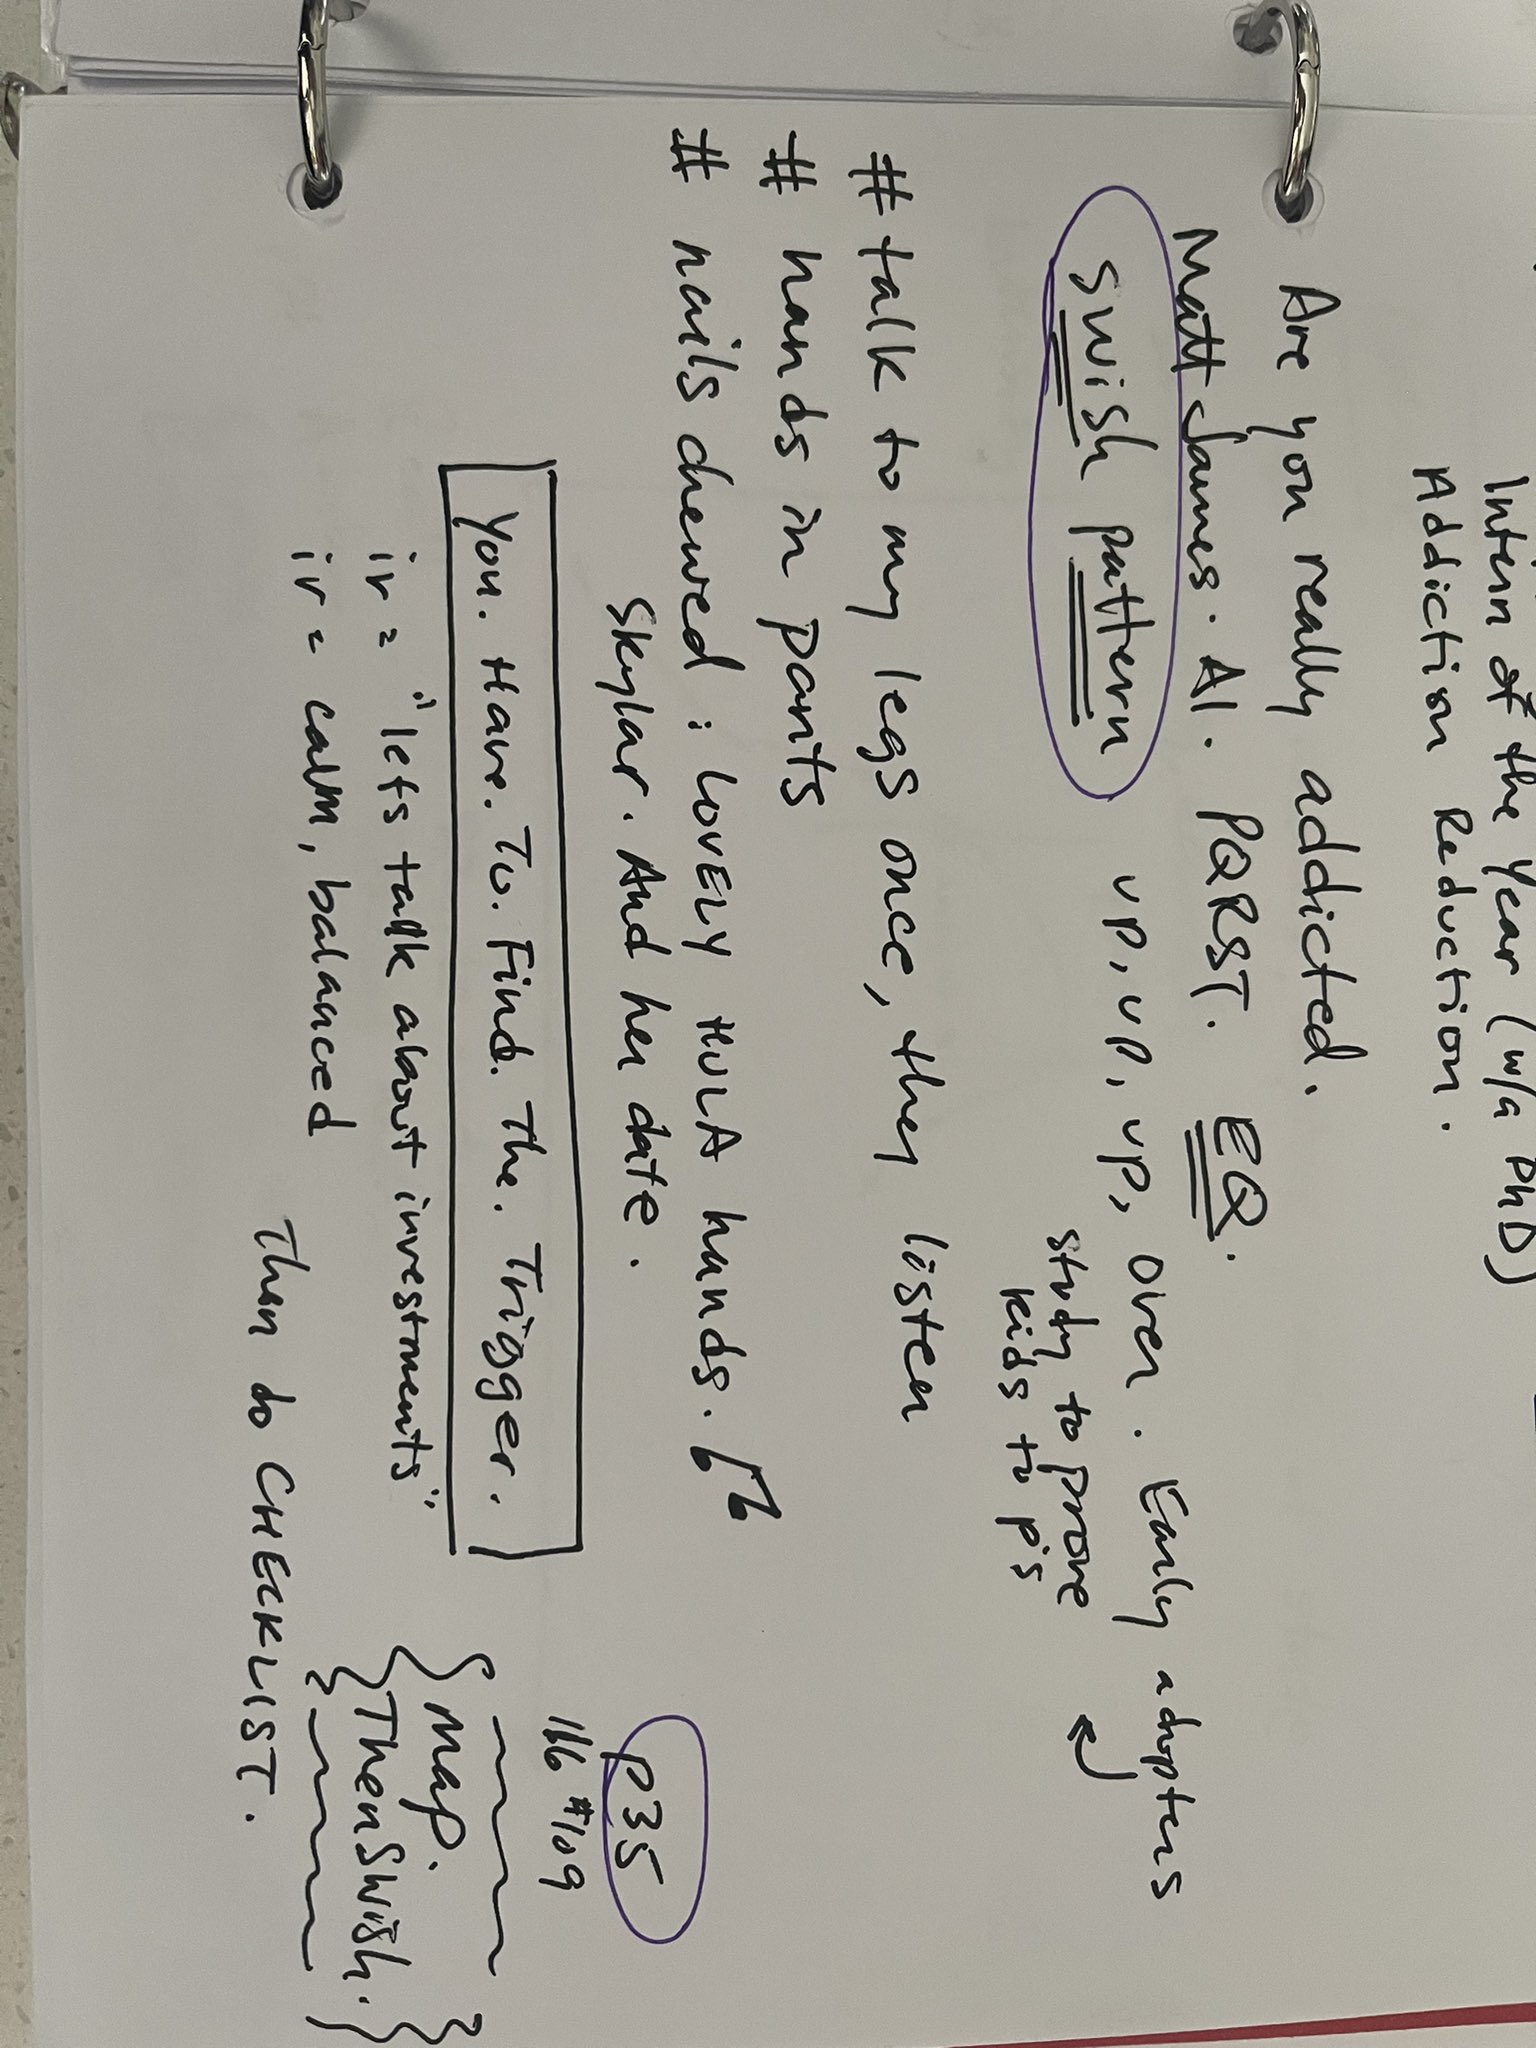 Intern of the Year (w/a PhD)
Addiction Reduction.
Are you really addicted.
Matt James. AI. PQRST. EQ.
swish pattern up, up, up, over. Early adopters
study to prove
kids to p's
# talk to my legs once, then listen
# hands in pants
# nails chewed : LOVELY HULA hands.
Skylar. And her date.
You. Have. To. Find. The. Trigger.
ir = "lets talk about investments"
ir = calm, balanced
Then do CHECKLIST.
p35
116 #109
Map.
Then Swish.